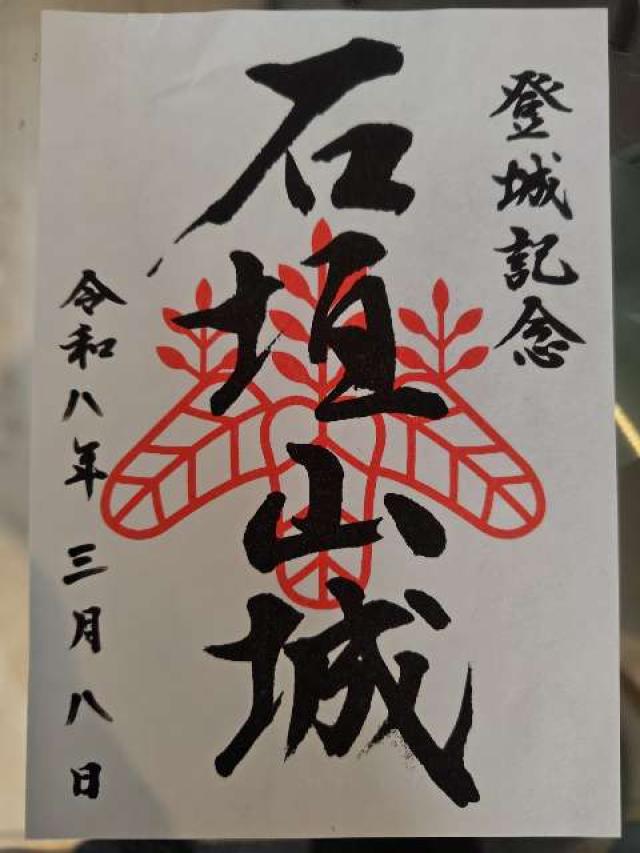 登城記念
石垣山城
令和八年三月八日